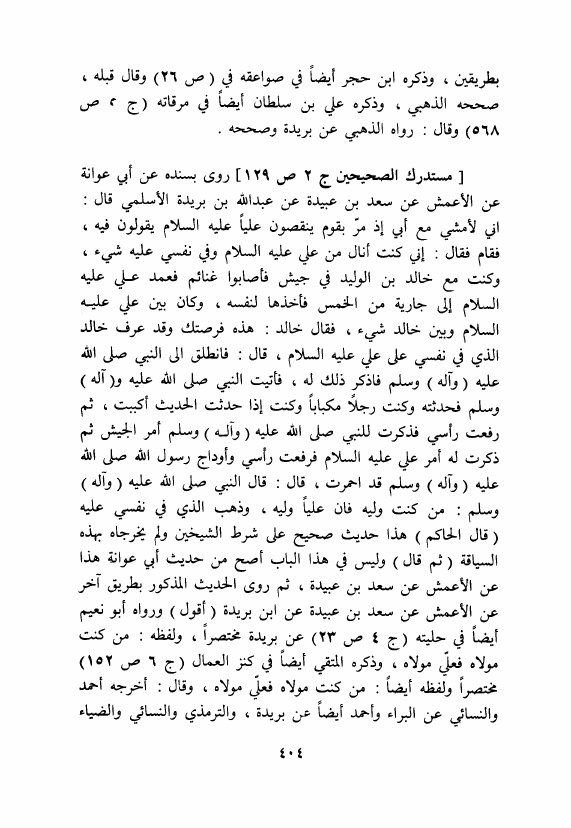 بطريقين ، وذكره ابن حجر أيضاً في صواعقه في ( ص ٢٦) وقال قبله ،
صححه الذهبي ، وذكره علي بن سلطان أيضاً في مرقاته ( ج ٥ ص
٥٦٨) وقال : رواه الذهبي عن بريدة وصححه .
[ مستدرك الصحيحين ج ٢ ص ١٢٩ ] روى بسنده عن أبي عوانة
عن الأعمش عن سعد بن عبيدة عن عبدالله بن بريدة الأسلمي قال :
اني لأمشي مع أبي إذ مرّ بقوم ينقصون علياً عليه السلام يقولون فيه ،
فقام فقال : إني كنت أنال من علي عليه السلام وفي نفسي عليه شيء ،
وكنت مع خالد بن الوليد في جيش فأصابوا غنائم فعمد علي عليه
السلام إلى جارية من الخمس فأخذها لنفسه ، وكان بين علي عليه
السلام وبين خالد شيء ، فقال خالد : هذه فرصتك وقد عرف خالد
الذي في نفسي على علي عليه السلام ، قال : فانطلق الى النبي صلى الله
عليه ( وآله ) وسلم فاذكر ذلك له ، فأتيت النبي صلى الله عليه و( آله )
وسلم فحدثته وكنت رجلاً مكباباً وكنت إذا حدثت الحديث أكببت ، ثم
رفعت رأسي فذكرت للنبي صلى الله عليه ( وآله ) وسلم أمر الجيش ثم
ذكرت له أمر علي عليه السلام فرفعت رأسي وأوداج رسول الله صلى الله
عليه ( وآله ) وسلم قد احمرت ، قال : قال النبي صلى الله عليه ( وآله )
وسلم : من كنت وليه فان علياً وليه ، وذهب الذي في نفسي عليه
( قال الحاكم ) هذا حديث صحيح على شرط الشيخين ولم يخرجاه بهذه
السياقة ( ثم قال ) وليس في هذا الباب أصح من حديث أبي عوانة هذا
عن الأعمش عن سعد بن عبيدة ، ثم روى الحديث المذكور بطريق آخر
عن الأعمش عن سعد بن عبيدة عن ابن بريدة ( أقول ) ورواه أبو نعيم
أيضاً في حليته ( ج ٤ ص ٢٣) عن بريدة مختصراً ، ولفظه : من كنت
مولاه فعلّي مولاه ، وذكره المتقي أيضاً في كنز العمال ( ج ٦ ص ١٥٢)
مختصراً ولفظه أيضاً : من كنت مولاه فعلّي مولاه ، وقال : أخرجه أحمد
والنسائي عن البراء وأحمد أيضاً عن بريدة ، والترمذي والنسائي والضياء
٤٠٤